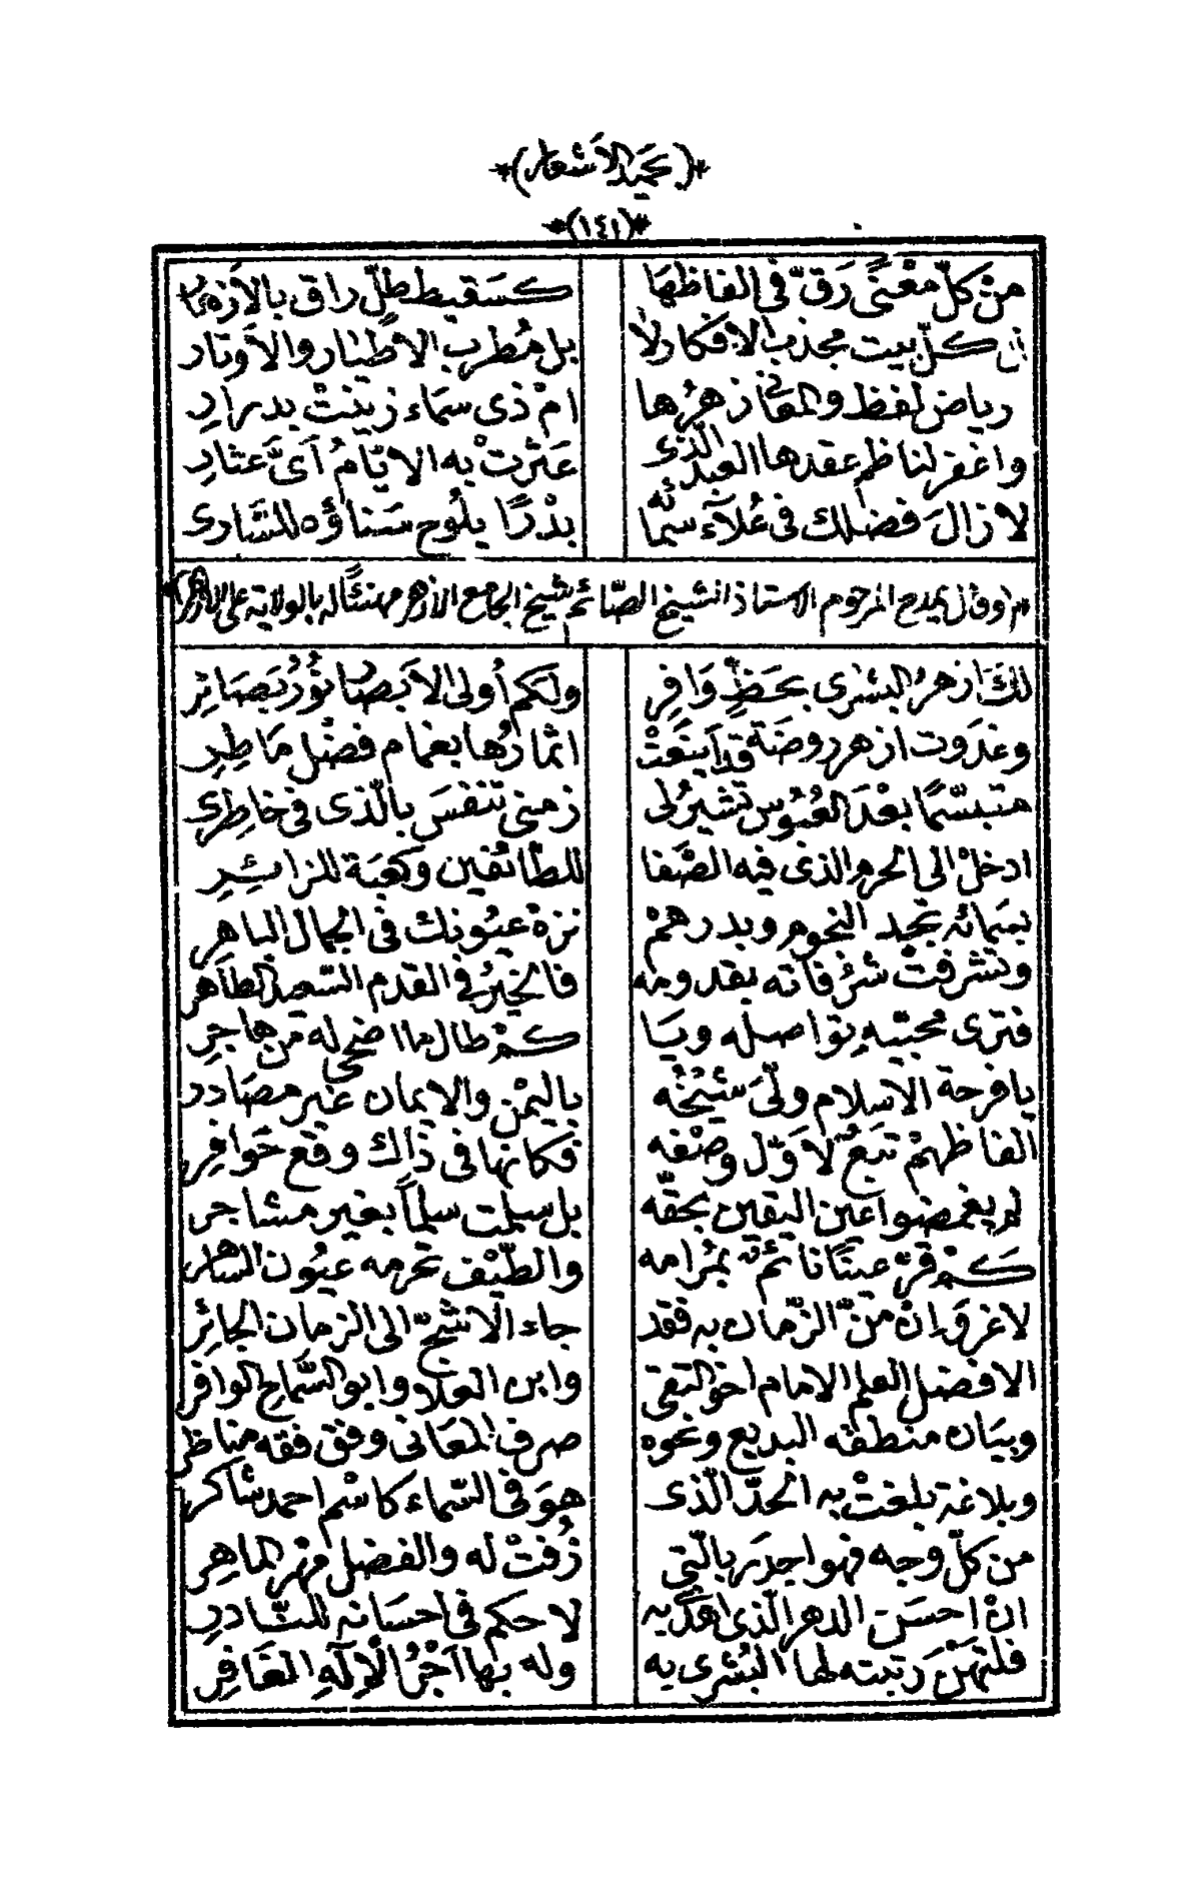 *(حميد الأشعار)*
*(١٤١)*
من كلّ معْنًى رَقّ في الفاظهَا كسَقيط طلّ راق بالأزهار
كلّ بيت مجذب الافكار لا بل مُطرب الاطيار والأوتار
رياض لفظ والمعاني زهرُها امْ ذى سمَاء زينتْ بدرارِ
واغفر لناظم عقدها العبد الّذى عَثرتْ به الايّامُ اَىَّ عثارِ
لا زالَ فضلك في عُلآء سمائه بدْرًا يلُوح سَناؤه للسَّارى
*(وقال يمدح المرحوم الاستاذ الشيخ الصّائم شيخ الجامع الأزهر مهنئًا له بالولاية على الازهر)*
لكَ ازهرُ البشرى بحَظٍّ وَافِرِ ولَكم أولى الاَبصار نوُرُ بَصَائِرِ
وغدَوت ازهر روضَة قد اَينَعَتْ اثمارُها بغمام فضْل مَاطِرِ
متبسّمًا بعْدَ العُبُوس تشيرُ لى زمنى تنفسَ بالّذى في خاطِرِى
ادخلْ الى الحرم الذى فيه الصَّفا للطائفين وكعْبَة للزائِرِ
بسَمائه تجد النجوم وبدرهمْ نزه عيُونك في الجمال الباهرِ
وتشرفتْ شرُفاته بقدومه فالخيرُ في القدم السّعيد الطاهر
فترى محبّيه تواصله ويَا كمْ طال ما اضحى له من هاجِرِ
يا فرحة الاسلام ولّىَ شيْخُه باليمْن والايمان غير مصَادر
الفاظهمْ تبَعٌ لاَوّل وصْفه فكانها في ذاك وقْع حَوافِرِ
لم يغمضوا عين اليقين بحقّه بل سلمت سلماً بغير مشاجر
كمْ قرّ عينًا نائم بمُرامه والطّيْف تحرمه عيُون السّاهر
لا غروَ اِنْ منَّ الزّمان به فقد جاء الاشجّ الى الزمان الجائرِ
الافضل العلم الامام اخو التقى وابن العلا وابو السَّماح الوافرِ
وبيَان منطقه البديع ونحوه صرف المعَانى وفق فقه مناظر
وبلاغة بلغتْ به الحدّ الّذى هوَ في السّماء كاسْم احمد شاكر
من كلّ وجه فهو اجدَر بالّتى زُفتْ له والفضل مهر الماهِرِ
انْ احسَن الدهر الّذى اهدَى به لا حكم في احسَانه للنّادرِ
فلتهنَ رتبته لها البُشرى به وله بها اَجْرُ الْاِلَهِ الغَافِرِ